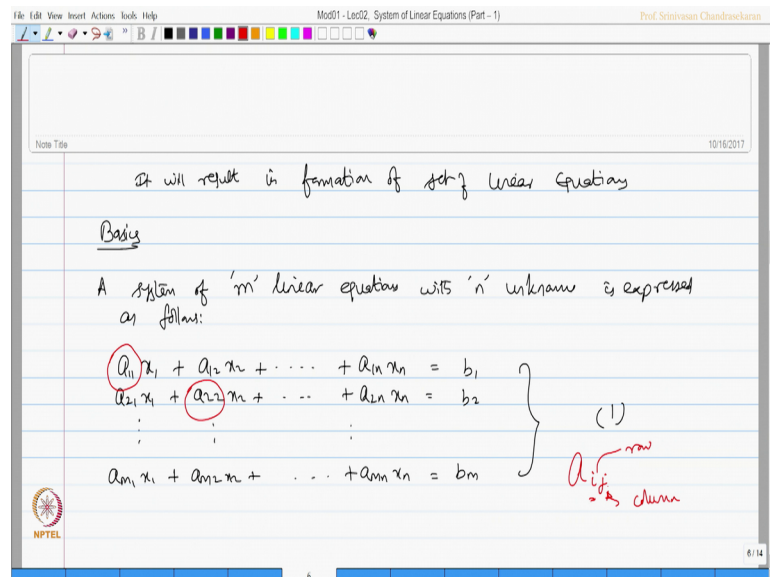 File Edit View Insert Actions Tools Help
Mod01 - Lec02, System of Linear Equations (Part – 1)
Prof. Srinivasan Chandrasekaran
B I
Note Title
10/16/2017
It will result in formation of set of linear equations
Basics
A system of 'm' linear equations with 'n' unknowns is expressed
as follows:
a11 x1 + a12 x2 + ..... + a1n xn = b1
a21 x1 + a22 x2 + ... + a2n xn = b2
: : :
am1 x1 + am2 x2 + .... + amn xn = bm
(1)
aij
row
column
NPTEL
6 / 14